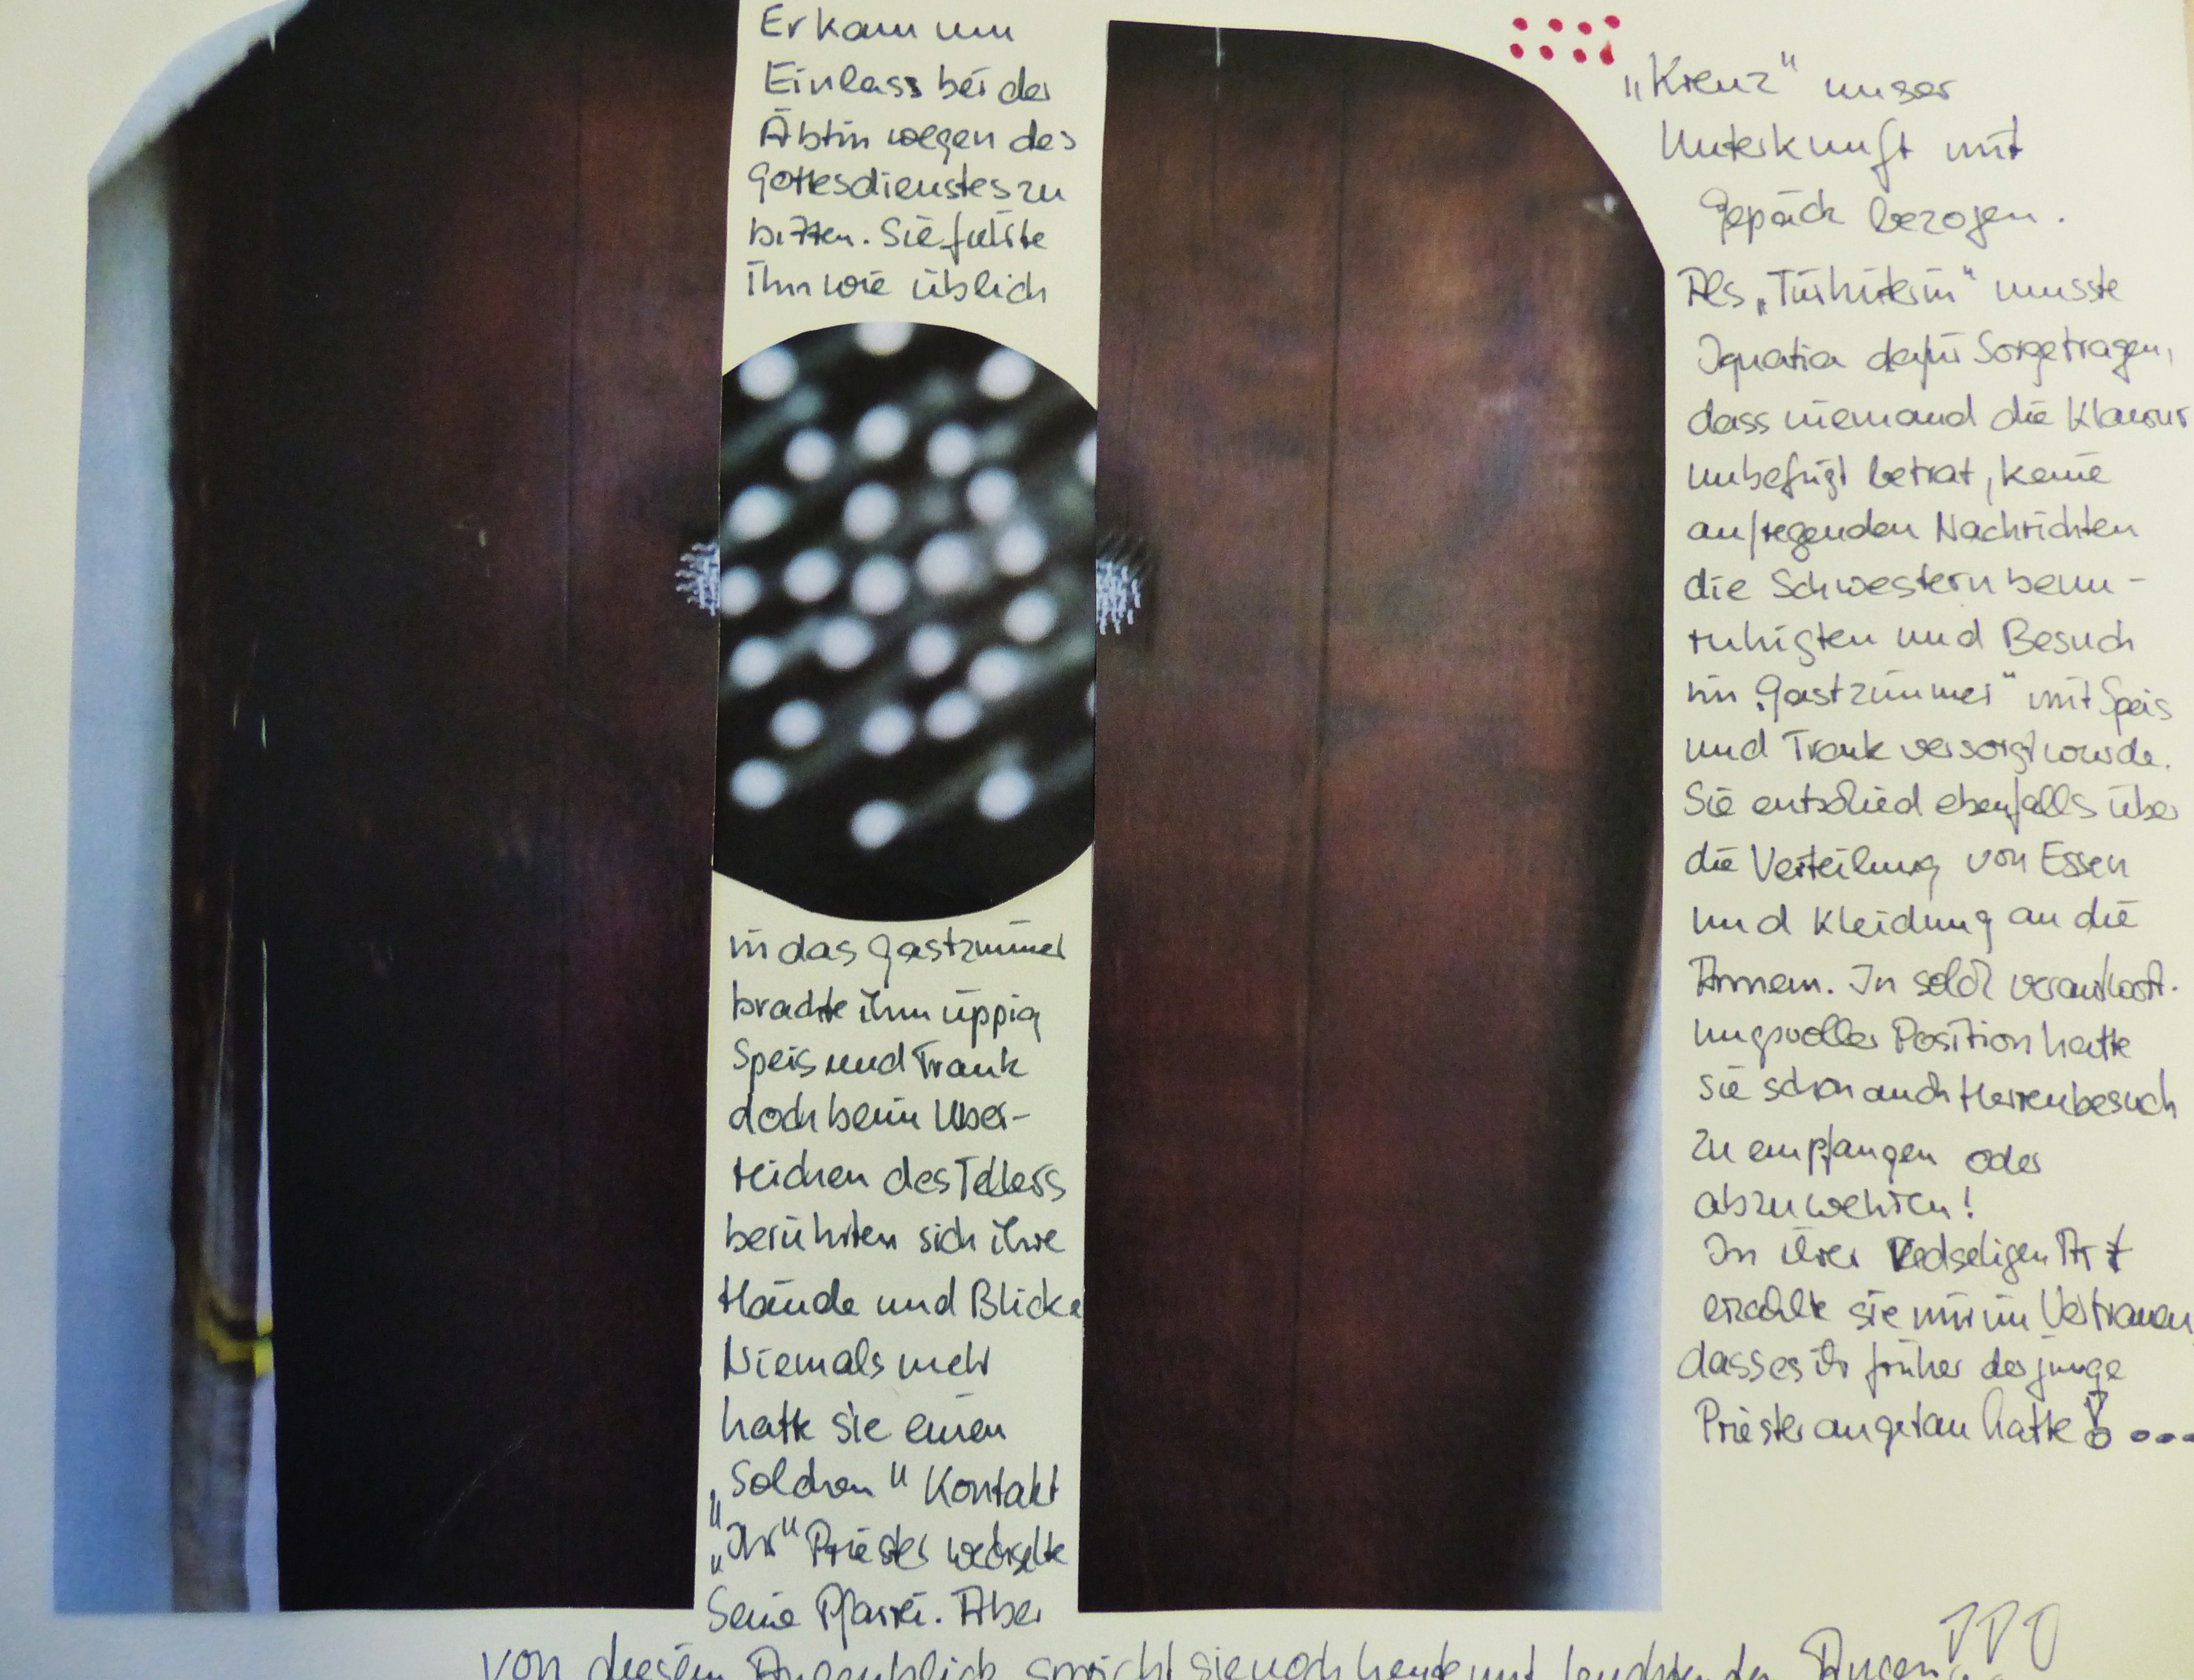 „Kreuz" unser
Unterkunft mit
Gepäck bezogen.
Als „Türhüterin" musste
Ignatia dafür Sorge tragen,
dass niemand die Klausur
unbefugt betrat, keine
aufregenden Nachrichten
die Schwestern beun-
ruhigten und Besuch
im „Gastzimmer" mit Speis
und Trank versorgt wurde.
Sie entschied ebenfalls über
die Verteilung von Essen
und Kleidung an die
Armen. In solch verantwort-
ungsvoller Position hatte
sie schon auch Herrenbesuch
zu empfangen oder
abzuwehren!
In ihrer redseligen Art
erzählte sie mir im Vertrauen,
dass es ihr früher der junge
Priester angetan hatte! ...
Er kam um
Einlass bei der
Äbtin wegen des
Gottesdienstes zu
bitten. Sie führte
ihn wie üblich
in das Gastzimmer
brachte ihm üppig
Speis und Trank
doch beim Über-
reichen des Tellers
berührten sich ihre
Hände und Blicke
Niemals mehr
hatte sie einen
„Solchen" Kontakt
„Ihr" Priester wechselte
Seine Pfarrei. Aber
von diesem Augenblick spricht sie noch heute mit leuchtenden Augen